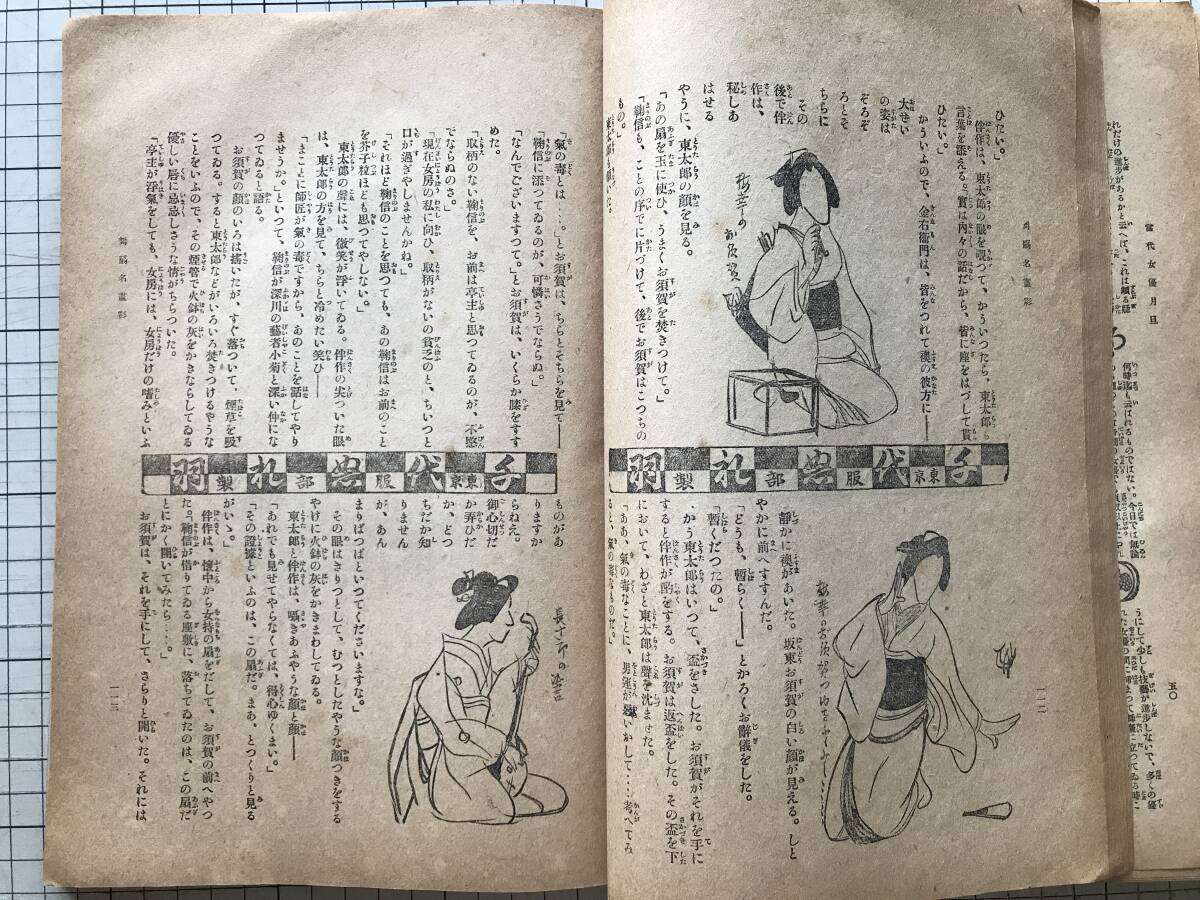 當代女優月旦
五〇
れだけの進歩があるかと云へば、これは頗る疑
何時迄も云はれるものではない。今日では無論
うにして少しも技藝が進歩しないで、多くの優
ひたい。」
伴作は、東太郎の眼を覗つて、かういつたら、東太郎も
言葉を添える。「實は内々の話だから、皆に座をはづして貰
ひたい。」
かういふので、金右衛門は、皆をつれて襖の彼方に――
大せい
の姿は
ぞろぞ
ろとそ
ちらに
その
後で伴
作は、
秘しあ
はせる
やうに、東太郎の顔を見る。
「あの扇を玉に使ひ、うまくお須賀を焚きつけて。」
「鞠信も、ことの序に片づけて、後でお須賀はこつちの
もの。」
千代田札羽
東京呉服部製
靜かに襖があいた。坂東お須賀の白い顔が見える。しと
やかに前へすすんだ。
「どうも、暫らく――」とかろくお辭儀をした。
「暫くだつたの。」
かう東太郎はいつて、盃をさした。お須賀がそれを手に
すると伴作が酌をする。お須賀は返盃をした。その盃を下
において、わざと東太郎は聲を沈ませた。
「ああ、氣の毒なことに、男運が惡いかして‥‥考へてみ
ると、氣の毒なものだ。」
一一二
「氣の毒とは‥‥。」お須賀は、ちらとそちらを見て――
「鞠信に添つてゐるのが、可憐さうでならぬ。」
「なんでございますつて。」とお須賀は、いくらか膝をすす
めた。
「取柄のない鞠信を、お前は亭主と思つてゐるのが、不愍
でならぬのさ。」
「現在女房の私に向ひ、取柄がないの貧乏のと、ちいつと
口が過ぎやしませんかね。」
「それほど鞠信のことを思つても、あの鞠信はお前のこと
を芥子粒ほども思つてやしない。」
東太郎の聲には、微笑が浮いてゐる。伴作の尖つた眼
は、東太郎の方を見て、ちらと冷めたい笑ひ――
「まことに師匠が氣の毒ですから、あのことを話してやり
ませうか。」といつて、鞠信が深川の藝者小菊と深い仲にな
つてゐると語る。
お須賀の顔のいろは揺いたが、すぐ落ついて、煙草を吸
つてゐる。すると東太郎などがいろいろ焚きつけるやうな
ことをいふので、その煙管で火鉢の灰をかきならしてゐる
優しい唇に忌忌しさうな情がちらついた。
「亭主が浮氣をしても、女房には、女房だけの嗜みといふ
千代田札羽
東京呉服部製
ものがあ
りますか
らねえ。
御心切だ
か弄ひだ
か、どつ
ちだか知
りません
が、あん
まりぱつぱといつてくださいますな。」
その眼はきりつとして、むつとしたやうな顔つきをする
やけに火鉢の灰をかきまわしてゐる。
東太郎と伴作は、囁きあふやうな顔と顔――
「あれでも見せてやらなくては、得心ゆくまい。」
「その證據といふのは、この扇だ。まあ、とつくりと見る
がいゝ。」
伴作は、懷中から女持の扇をだして、お須賀の前へやつ
た。「鞠信が借りてゐる座敷に、落ちてゐたのは、この扇だ
とにかく開いてみたら‥‥。」
お須賀は、それを手にして、さらりと開いた。それには
一一三